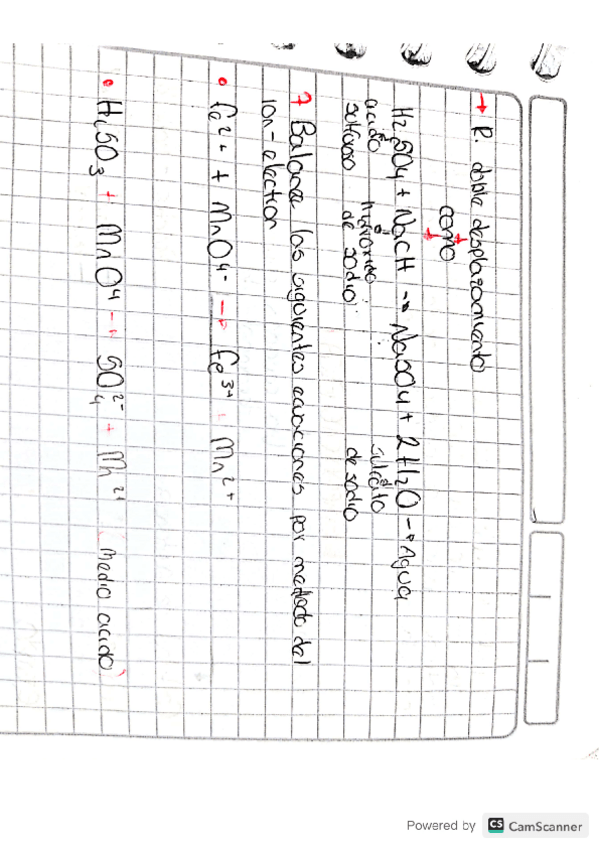 → R. doble desplazamiento
como
H2SO4 + NaCH → Na2SO4 + 2H2O → Agua
acido hidróxido sulfato
sulfuroso de sodio de sodio
7 Balance las siguientes ecuaciones por metodo del
ion-electron
• Fe2+ + MnO4- → Fe3+ + Mn2+
• H2SO3 + MnO4 → SO4 2- + Mn2+ Medio acido
Powered by CS CamScanner